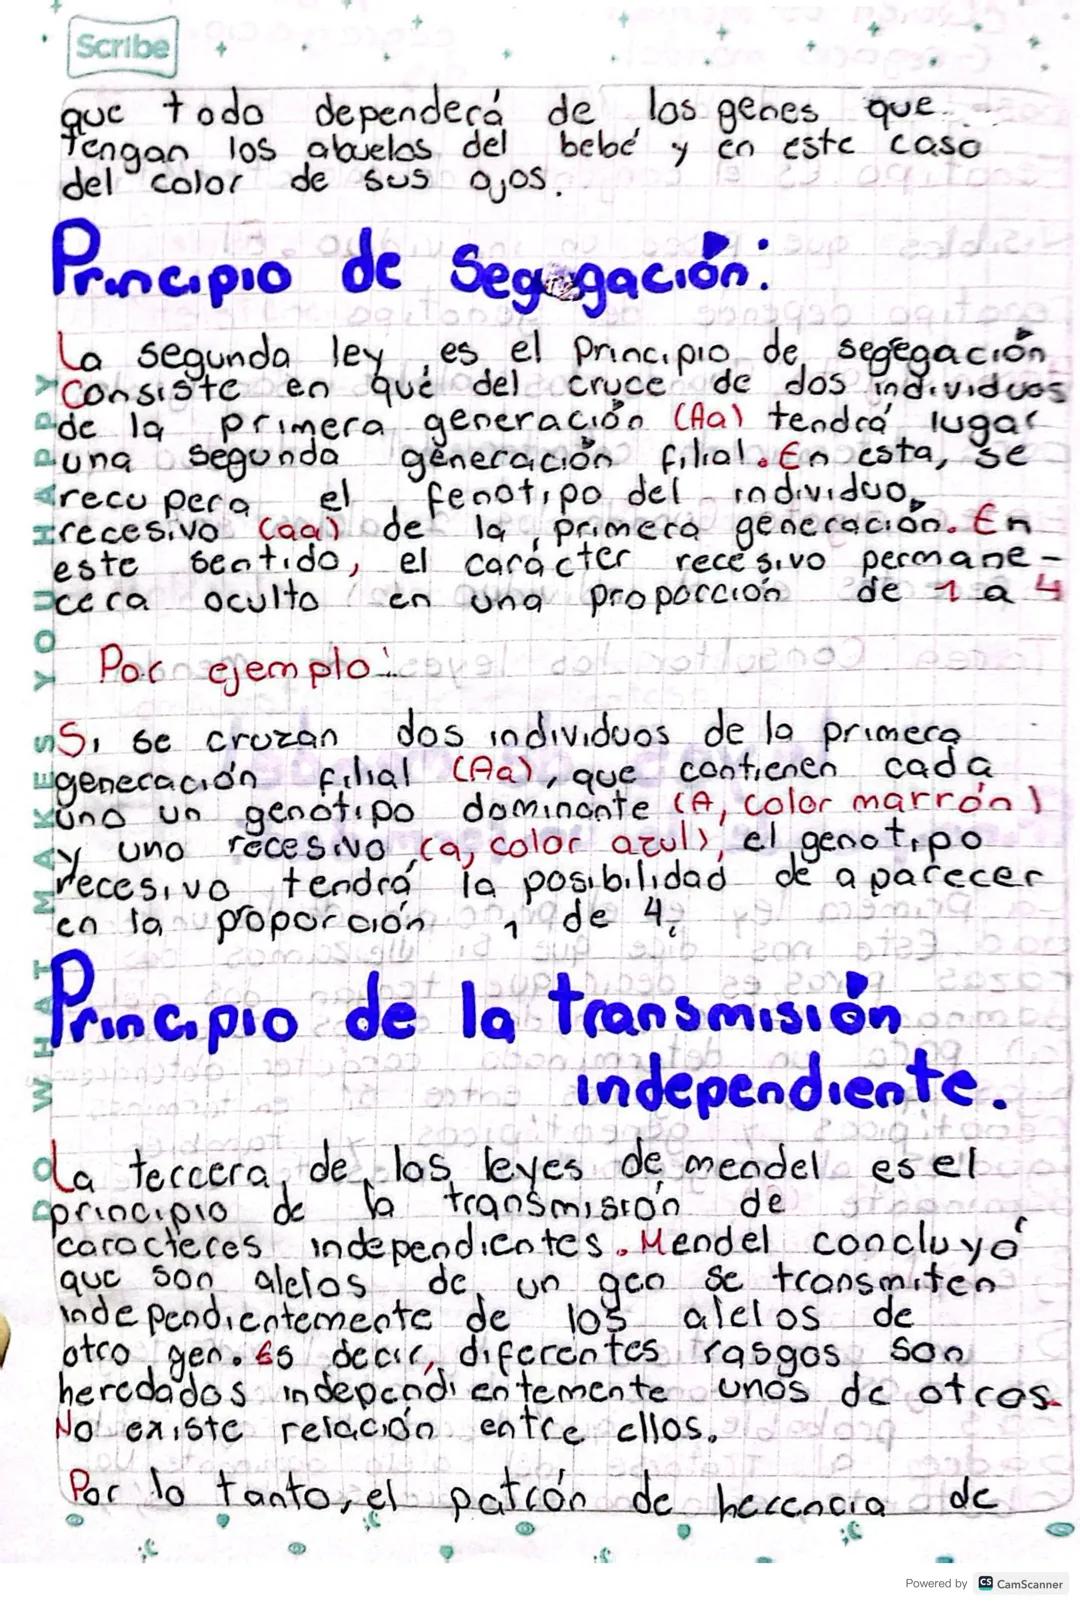 Scribe
que todo dependerá de los genes que
tengan los abuelos del bebé y en este caso
del color de sus ojos.
Principio de Segregación:
La segunda ley es el principio de segegación
Consiste en que del cruce de dos individuos
de la primera generación (Aa) tendrá lugar
una segunda generación filial. En esta, se
recupera el fenotipo del individuo
recesivo (aa) de la primera generación. En
este sentido, el carácter recesivo permane-
cera oculto en una proporción de 1 a 4
Por ejemplo:
Si se cruzan dos individuos de la primera
generación filial (Aa), que contienen cada
uno un genotipo dominante (A, color marrón)
y uno recesivo (a, color azul), el genotipo
recesivo tendrá la posibilidad de aparecer
en la proporción 1 de 4.
Principio de la transmisión
independiente.
La tercera de las leyes de mendel es el
principio de la transmisión de
caracteres independientes. Mendel concluyó
que son alelos de un gen se transmiten
independientemente de los alelos de
otro gen. Es decir, diferentes rasgos son
heredados independientemente unos de otros.
No existe relación entre ellos.
Por lo tanto, el patrón de herencia de
DO WHAT MAKES YOU HAPPY
Powered by CS CamScanner